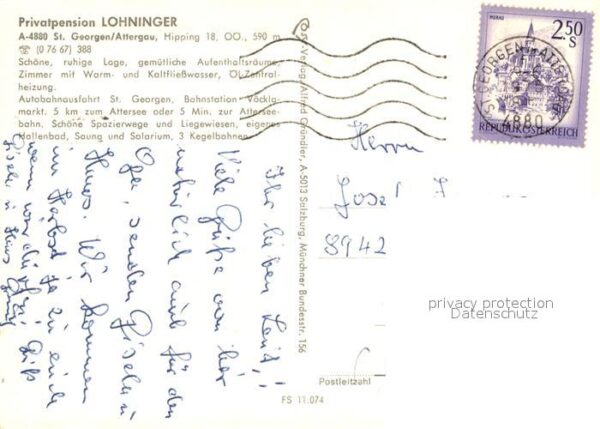 Privatpension LOHNINGER
A-4880 St. Georgen/Attergau, Hipping 18, OÖ., 590 m
☎ (0 76 67) 388
Schöne, ruhige Lage, gemütliche Aufenthaltsräume,
Zimmer mit Warm- und Kaltfließwasser, Öl-Zentral-
heizung.
Autobahnausfahrt St. Georgen, Bahnstation Vöckla-
markt. 5 km zum Attersee oder 5 Min. zur Attersee-
bahn. Schöne Spazierwege und Liegewiesen, eigenes
Hallenbad, Sauna und Solarium, 3 Kegelbahnen.
Ihr lieben Leut'!
Viele Grüße von hier
natürlich auch für den
Opa, senden Gisela u
Hans. Wir kommen
im Herbst ja zu euch
wenn
Gisela u Hans
Post-Verlag Alfred Gründler, A-5013 Salzburg, Münchner Bundesstr. 156
MURAU
2.50
S
REPUBLIK ÖSTERREICH
ST. GEORGEN I. ATTERGAU
4880
Herrn
Josef
8942
privacy protection
Datenschutz
Postleitzahl
FS 11.074